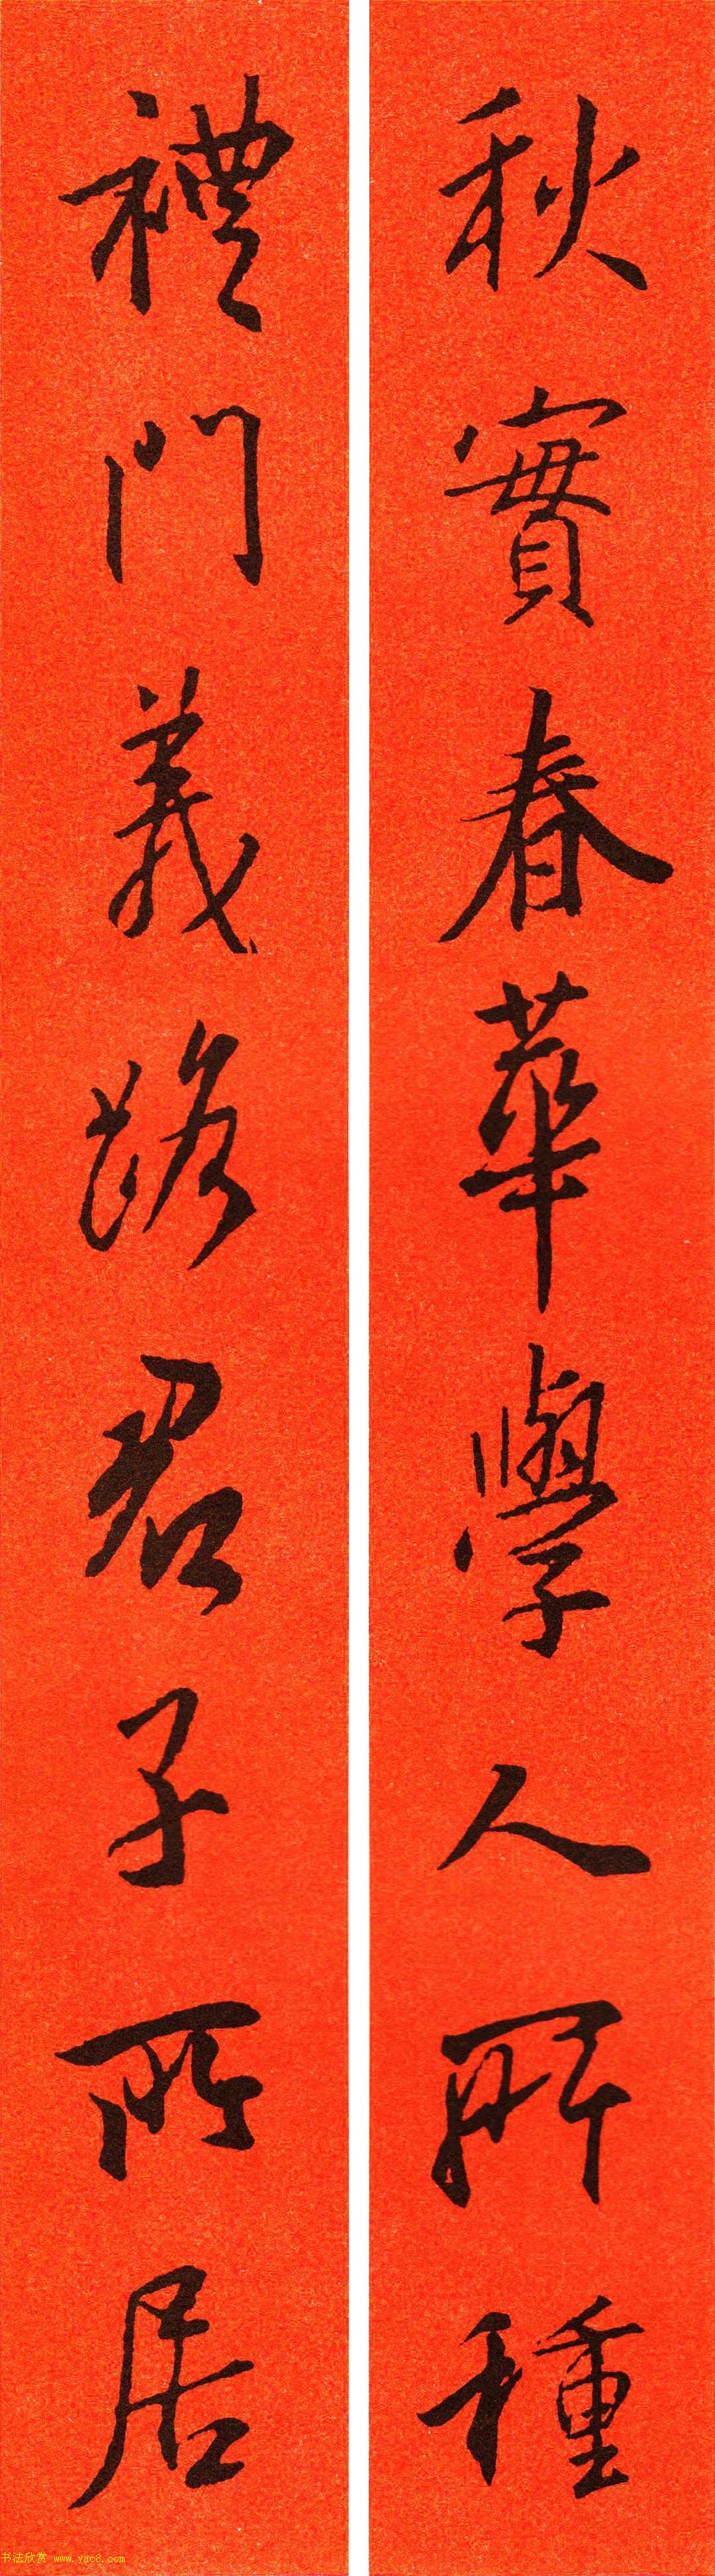 秋實春華學人所種
禮門義路君子所居
书法欣赏 www.yac8.com